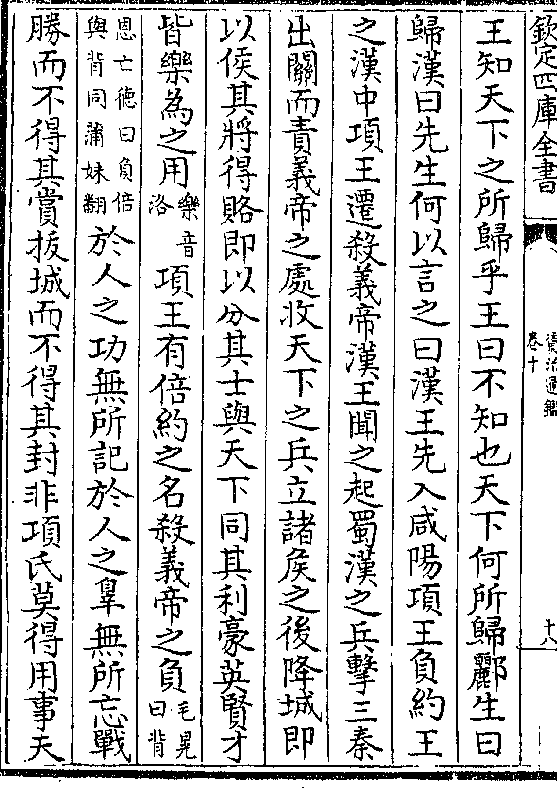 欽定四庫全書
資治通鑑
卷十
十八
王知天下之所歸乎王曰不知也天下何所歸酈生曰
歸漢曰先生何以言之曰漢王先入咸陽項王負約王
之漢中項王遷殺義帝漢王聞之起蜀漢之兵擊三秦
出關而責義帝之處收天下之兵立諸侯之後降城即
以侯其將得賂即以分其士與天下同其利豪英賢才
皆樂為之用樂音洛項王有倍約之名殺義帝之負毛晃曰背
恩亡德曰負倍與背同蒲妹翻於人之功無所記於人之辠無所忘戰
勝而不得其賞拔城而不得其封非項氏莫得用事天